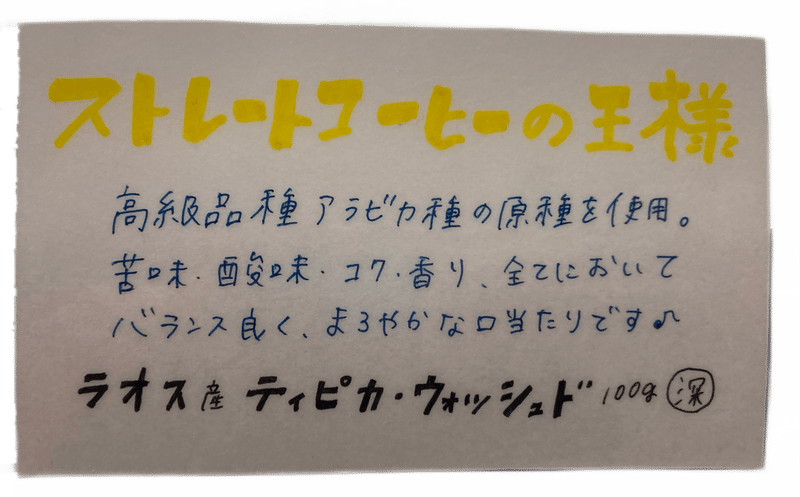 ストレートコーヒーの王様
高級品種アラビカ種の原種を使用。
苦味・酸味・コク・香り、全てにおいて
バランス良く、まろやかな口当たりです♪
ラオス産 ティピカ・ウォッシュド 100g 深